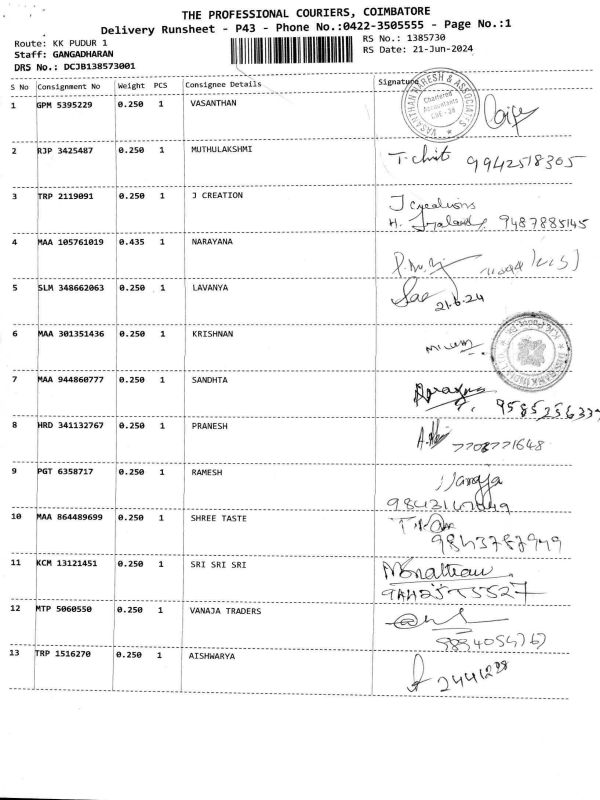 THE PROFESSIONAL COURIERS, COIMBATORE
Delivery Runsheet - P43 - Phone No.:0422-3505555 - Page No.:1
Route: KK PUDUR 1
RS No.: 1385730
Staff: GANGADHARAN
RS Date: 21-Jun-2024
DRS No.: DCJB138573001
S No Consignment No Weight PCS Consignee Details Signature
VASANTHAN NARESH & ASSOCIATES
Chartered
Accountants
CBE - 38
1 GPM 5395229 0.250 1 VASANTHAN
2 RJP 3425487 0.250 1 MUTHULAKSHMI
9942518305
3 TRP 2119091 0.250 1 J CREATION
J Creations
9487885145
4 MAA 105761019 0.435 1 NARAYANA
5 SLM 348662063 0.250 1 LAVANYA
21.6.24
6 MAA 301351436 0.250 1 KRISHNAN
7 MAA 944860777 0.250 1 SANDHTA
8 HRD 341132767 0.250 1 PRANESH
7708771648
9 PGT 6358717 0.250 1 RAMESH
10 MAA 864489699 0.250 1 SHREE TASTE
9843787949
11 KCM 13121451 0.250 1 SRI SRI SRI
12 MTP 5060550 0.250 1 VANAJA TRADERS
13 TRP 1516270 0.250 1 AISHWARYA